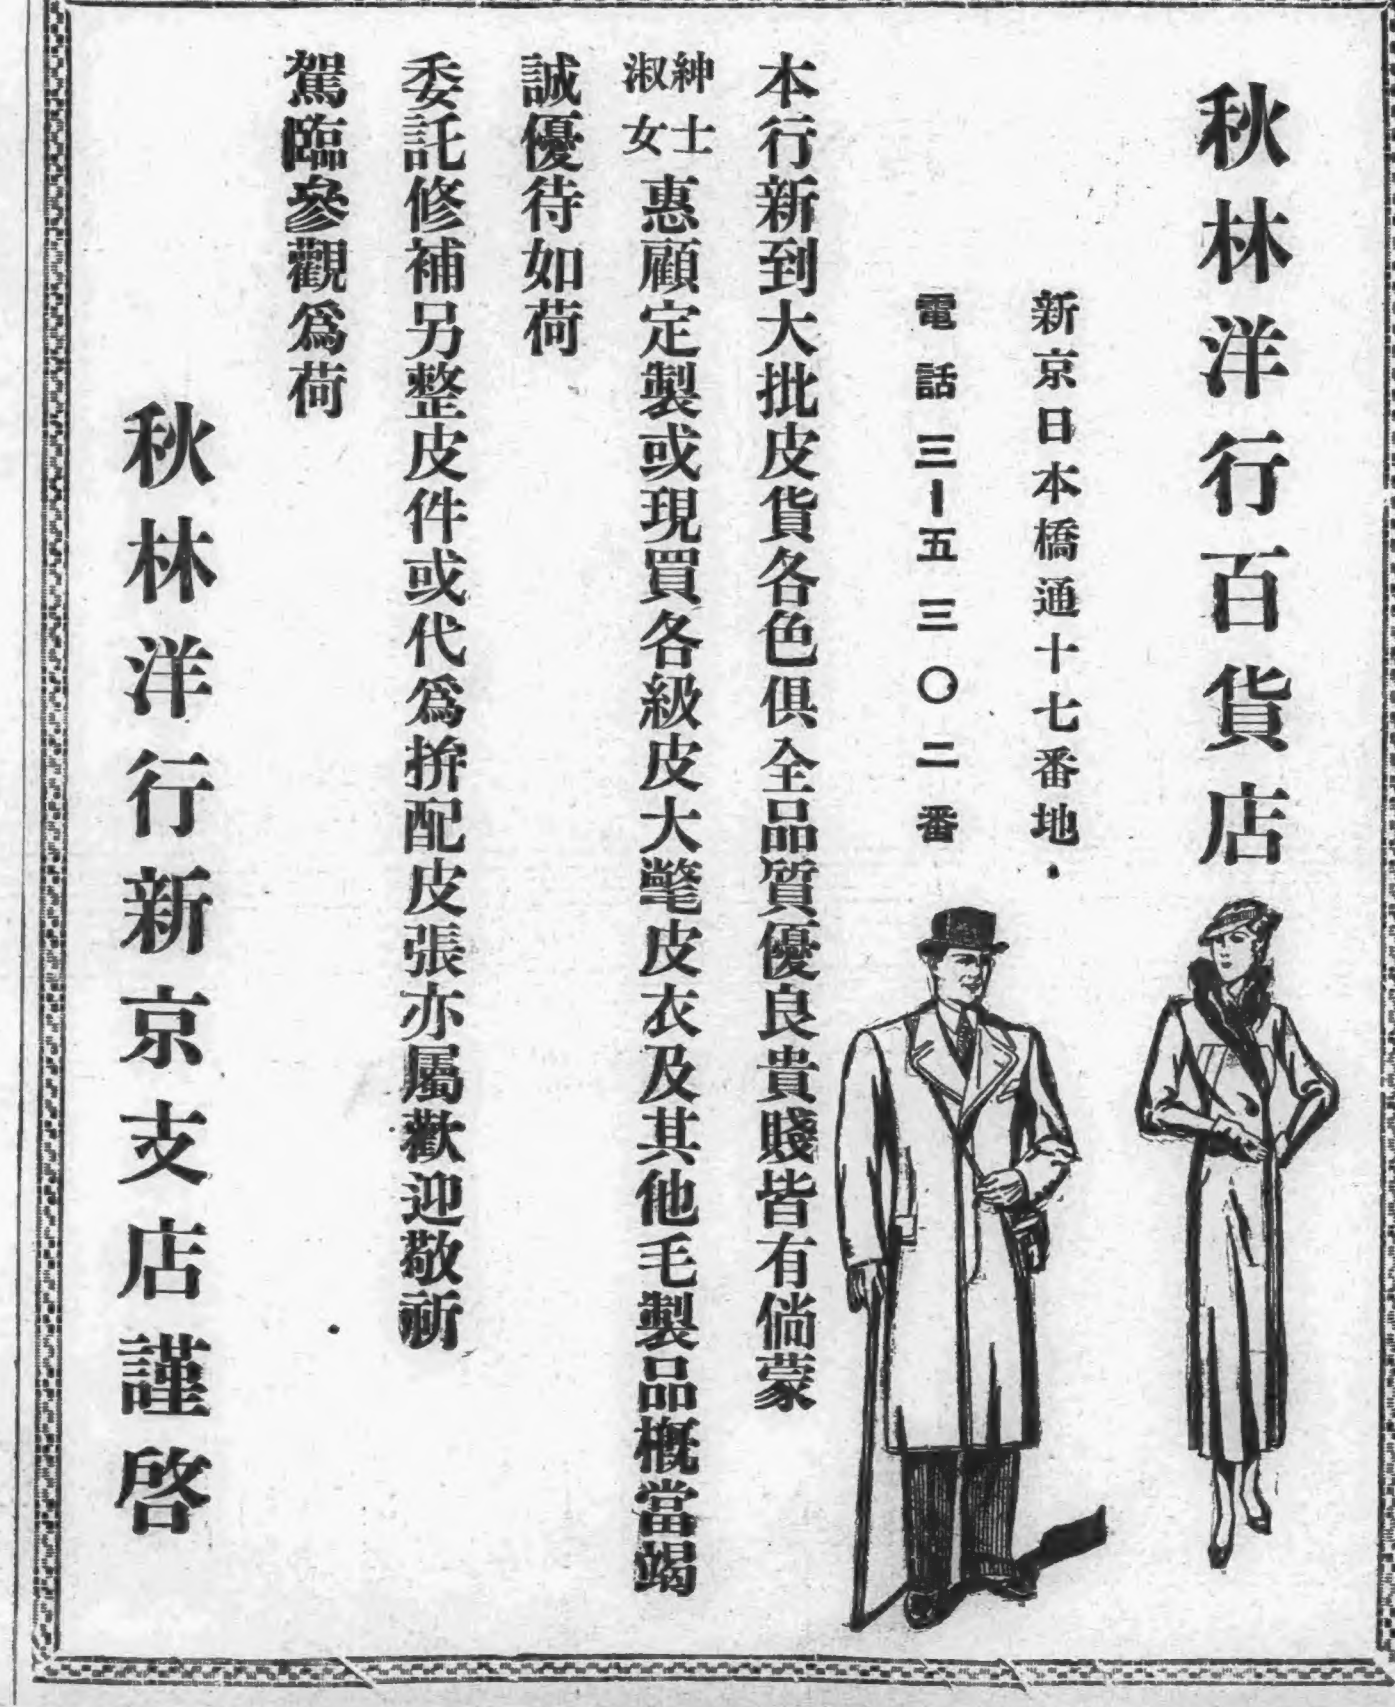 秋林洋行百貨店
新京日本橋通十七番地・
電話三-五三〇二番
本行新到大批皮貨各色俱全品質優良貴賤皆有倘蒙
紳士淑女惠顧定製或現買各級皮大氅皮衣及其他毛製品概當竭
誠優待如荷
委託修補另整皮件或代爲拚配皮張亦屬歡迎敬祈
駕臨參觀爲荷
秋林洋行新京支店謹啓